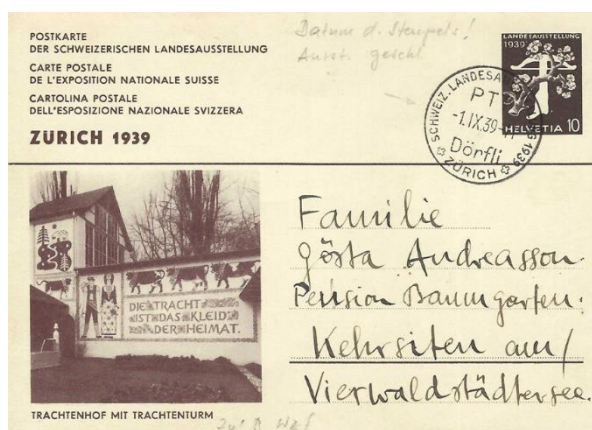 POSTKARTE
DER SCHWEIZERISCHEN LANDESAUSSTELLUNG
CARTE POSTALE
DE L'EXPOSITION NATIONALE SUISSE
CARTOLINA POSTALE
DELL'ESPOSIZIONE NAZIONALE SVIZZERA
ZÜRICH 1939
Datum d. Stempels!
Ausst. geschl.
LANDESAUSSTELLUNG
1939
HELVETIA 10
SCHWEIZ. LANDESA G 1939
PT
-1.IX.39-
Dörfli
ZÜRICH
DIE TRACHT
IST DAS KLEID
DER HEIMAT.
Familie
Gösta Andreasson.
Pension Baumgarten.
Kehrsiten am/
Vierwaldstädtersee.
TRACHTENHOF MIT TRACHTENTURM